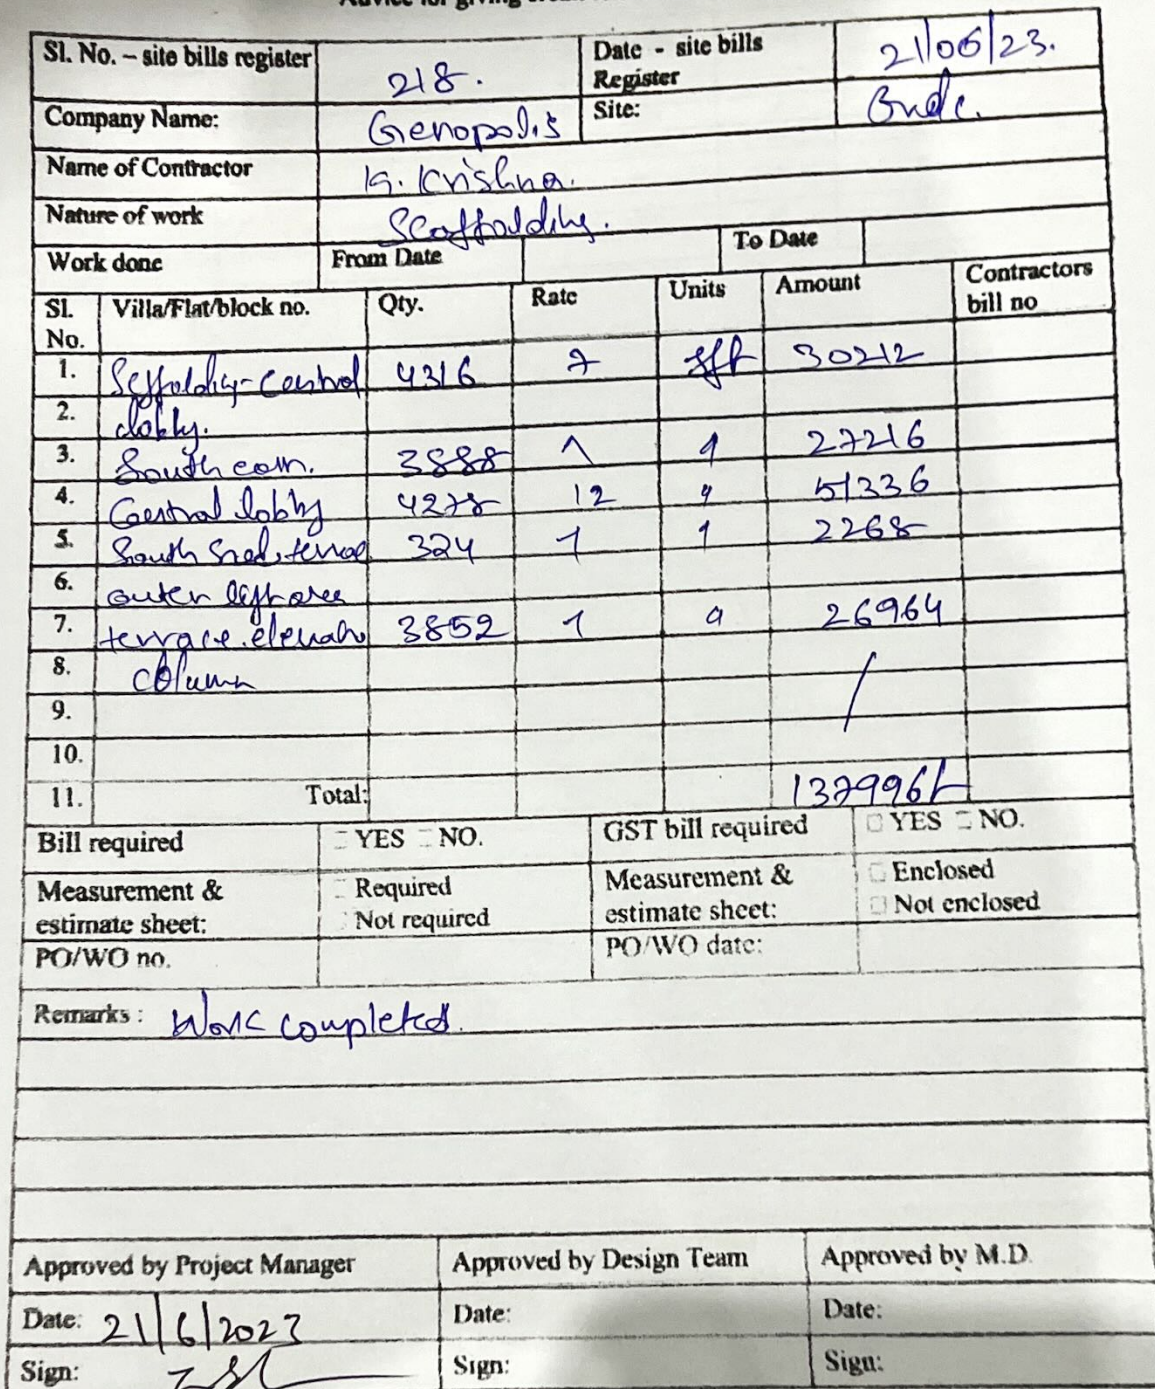 Sl. No. – site bills register 218. Date - site bills Register 21/06/23.
Company Name: Genopolis Site:
Name of Contractor K. Krishna.
Nature of work Scaffolding.
Work done From Date To Date
Sl. No. Villa/Flat/block no. Qty. Rate Units Amount Contractors bill no
1. 4316 7 sft 30212
2. lobby.
3. South 3888 27216
4. Central lobby 4278 12 " 51336
5. South 324 2268
6. outer
7. terrace 3852 26964
8. column
9.
10.
11. Total: 137996/-
Bill required YES NO. GST bill required YES NO.
Measurement & estimate sheet: Required Not required Measurement & estimate sheet: Enclosed Not enclosed
PO/WO no. PO/WO date:
Remarks : Work completed.
Approved by Project Manager Approved by Design Team Approved by M.D.
Date: 21/6/2023 Date: Date:
Sign: Sign: Sign: